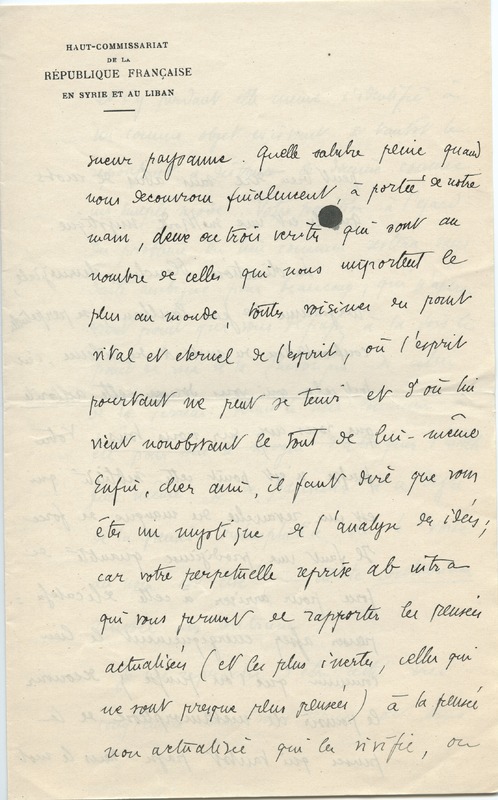 HAUT-COMMISSARIAT
DE LA
RÉPUBLIQUE FRANÇAISE
EN SYRIE ET AU LIBAN
sueur paysanne. Quelle salubre peine quand
nous decouvrons finalement, à portée de notre
main, deux ou trois verités qui sont au
nombre de celles qui nous importent le
plus au monde, toutes voisines du point
vital et eternel de l'esprit, où l'esprit
pourtant ne peut se tenir et d'où lui
vient nonobstant le tout de lui-même
Enfin, cher ami, il faut dire que vous
êtes un mystique de l'analyse des idées;
car votre perpetuelle reprise ab intra
qui vous permet de rapporter les pensées
actualisées (et les plus inertes, celles qui
ne sont presque plus pensées) à la pensée
non actualisée qui les vivifie, ou